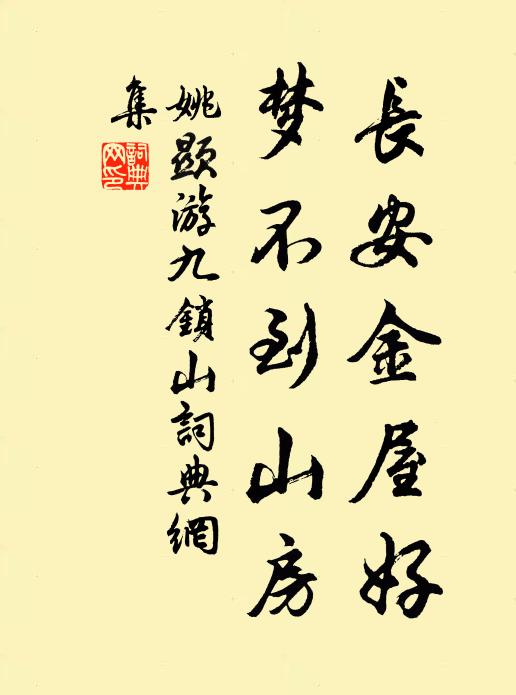 長安金屋好
梦不到山房
姚顕游九鎖山詞典網
集
詞典
网印